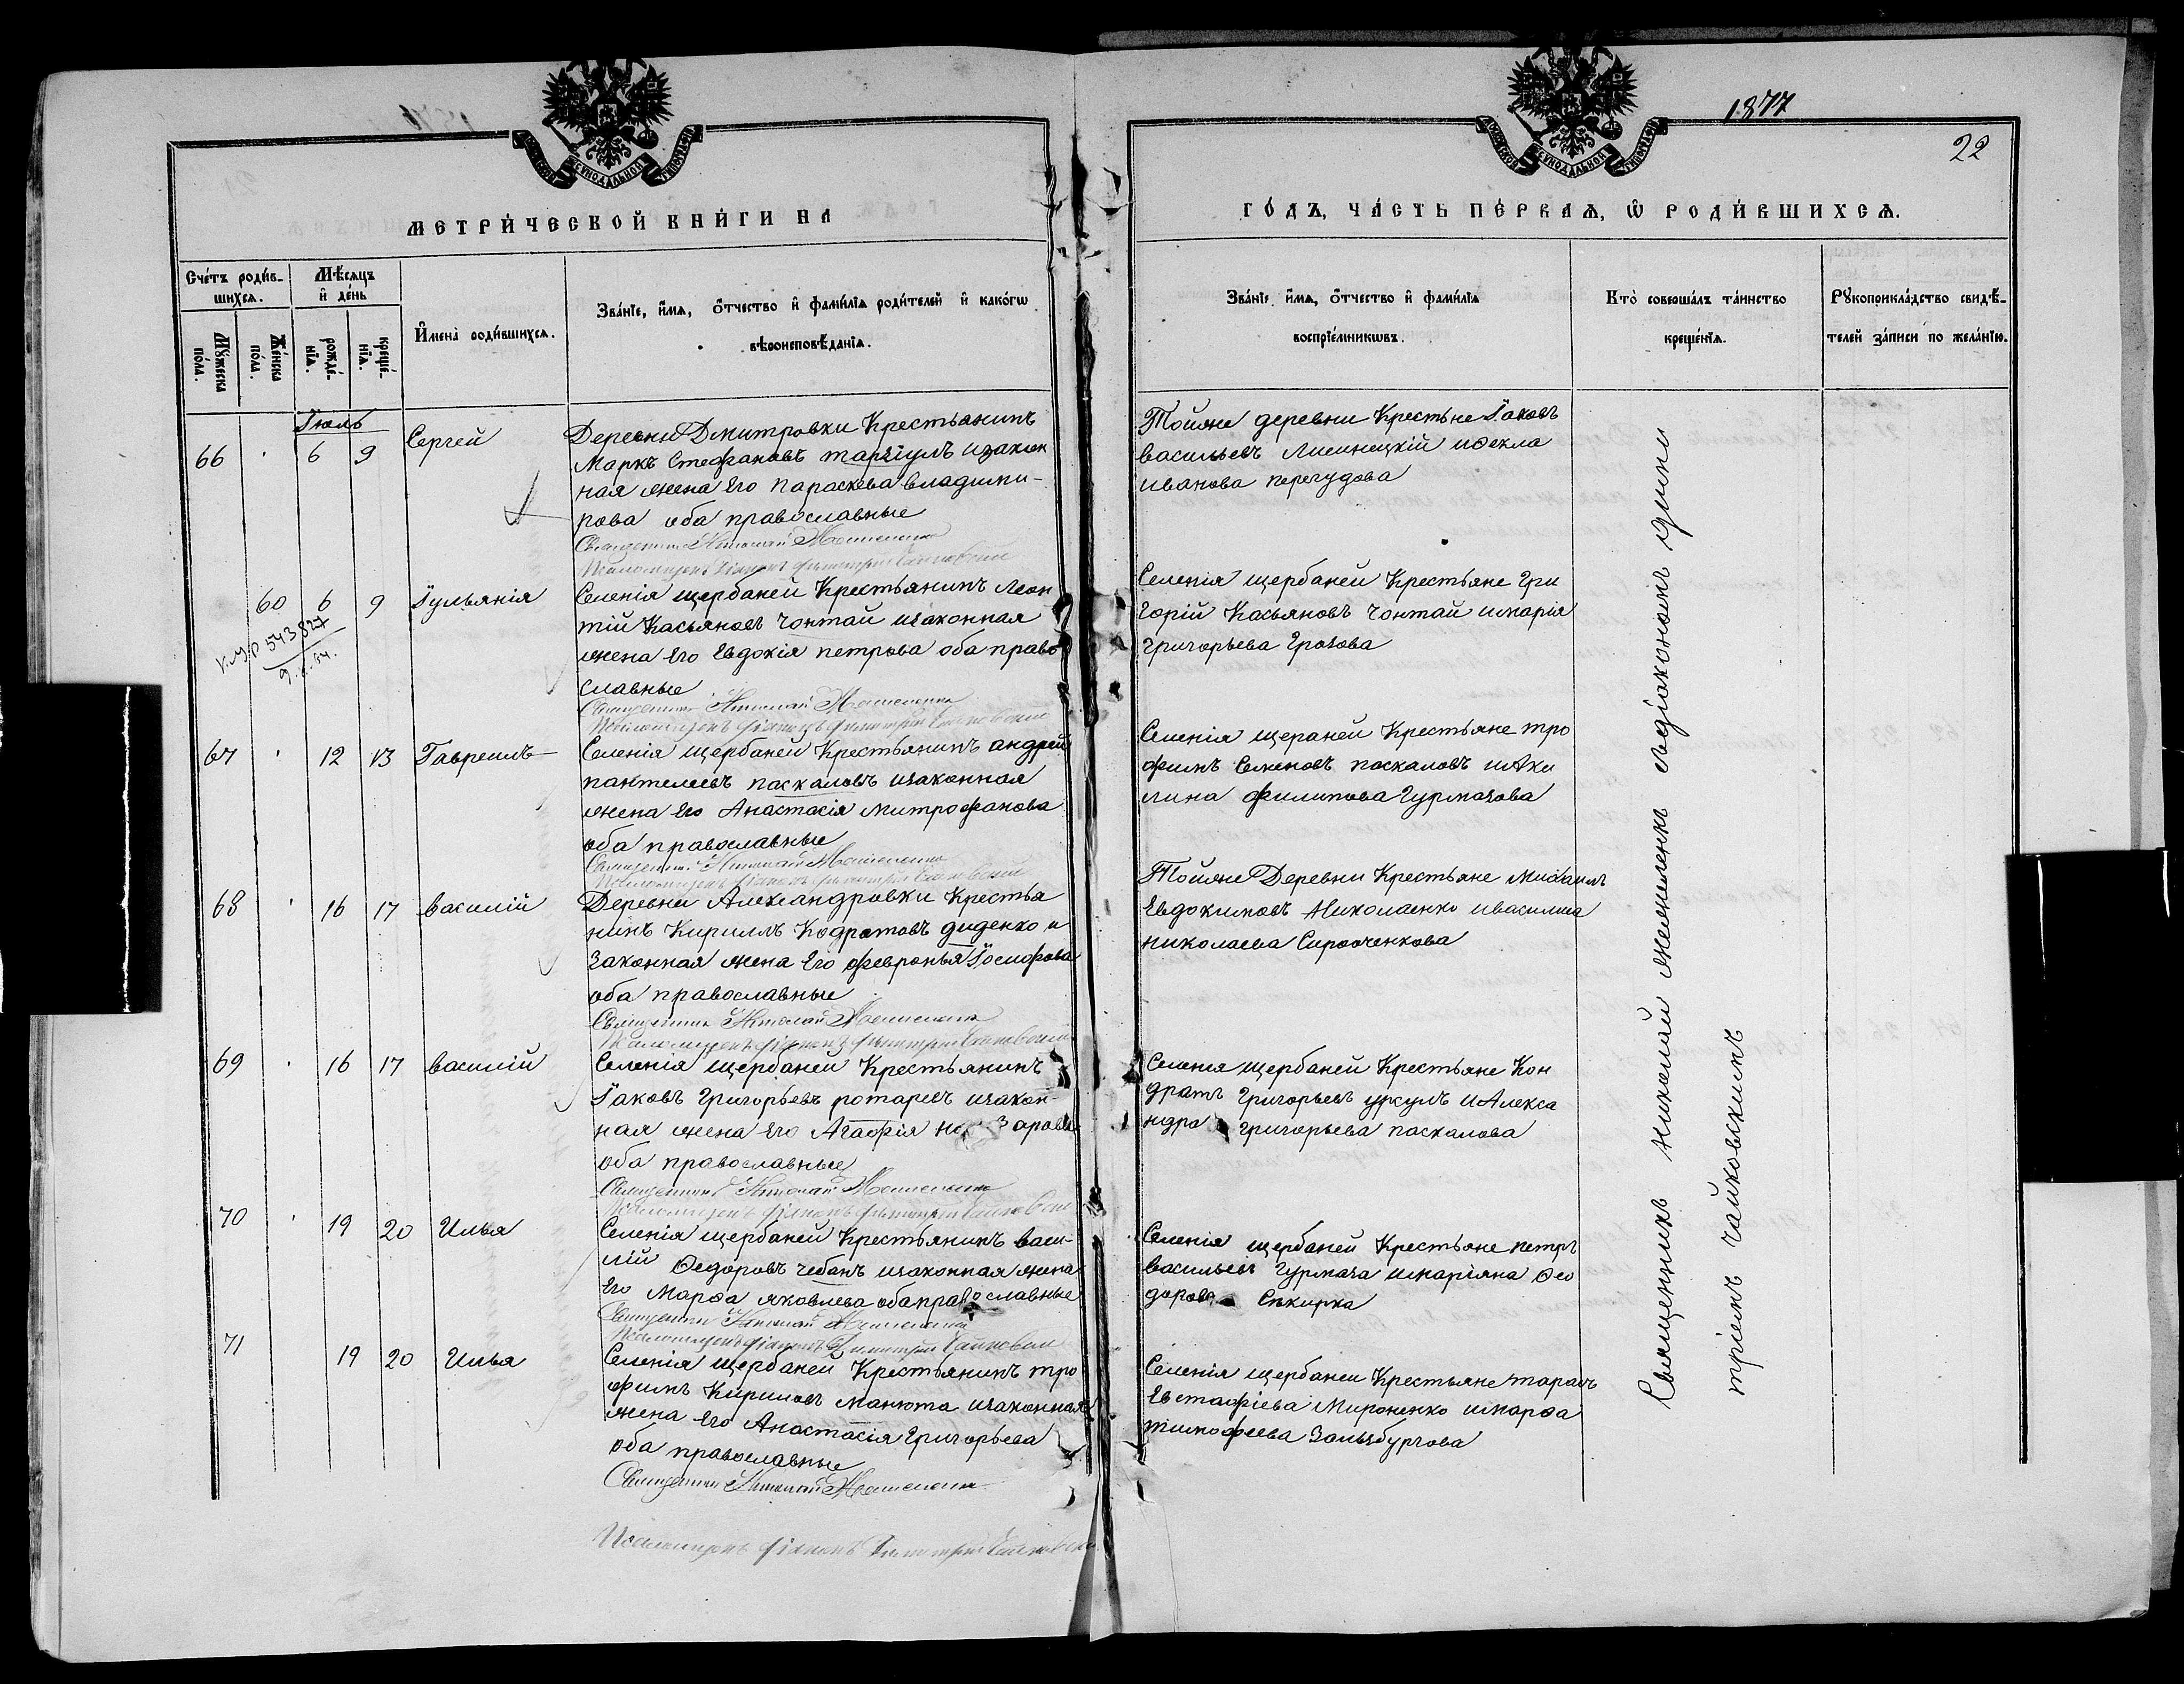 1877
22
МЕТРИ́ЧЕСКОЙ КНИ́ГИ НА
ГО́ДЪ, ЧА́СТЬ ПЕ́РВАѦ, Ѽ РОДИ́ВШИХСѦ.
Сче́тъ роди́в-
шихсѧ.
Мѣ́сѧцъ
и҆ де́нь
Мꙋ́жеска
по́ла.
Же́нска
по́ла.
рожде́-
нїѧ.
креще́-
нїѧ.
И҆мена̀ роди́вшихсѧ.
Зва́нїе, и҆́мѧ, ѻ҆́тчество и҆ фами́лїѧ роди́телей и҆ како́гѡ
вѣроисповѣ́данїѧ.
Зва́нїе, и҆́мѧ, ѻ҆́тчество и҆ фами́лїѧ
воспрїе́мникѡвъ.
Кто̀ соверша́лъ та́инство
креще́нїѧ.
Рꙋкоприкла́дство свидѣ́-
телей за́писи по жела́нїю.
Іюль
66 6 9 Сергей
Деревни Дмитровки Крестьянинъ
Маркъ Стефановъ изакон
ная жена Его Параскева владими-
рова оба православные
Священникъ Николай
Псаломщикъ діаконъ Димитрій
Тойже деревни Крестьне Іаковъ
васильевъ Лисинецкій иѳекла
иванова перегудова
60 6 9 Іульянія
543827
Селенія щербаней Крестьянинъ Леон
тій Касьяновъ Чонтай изаконная
жена Его Евдокія петрова оба право
славные
Священникъ Николай
Псаломщикъ діаконъ Димитрій
Селенія щербаней Крестьяне Гри
горій Касьяновъ Чонтай имарія
григорьева Грозова
67 12 13 Гавріилъ
Селенія щербаней Крестьянинъ андрей
пантелеевъ паскаловъ изаконная
жена Его Анастасія митрофанова
оба православные
Священникъ Николай
Псаломщикъ діаконъ Димитрій
Селенія щераней Крестьяне тро
фимъ Семеновъ паскаловъ иАки
лина филипова Гурмазова
68 16 17 василій
Деревни Александровки Крестья
нинъ Кириллъ Кодратовъ диденко и
законная жена Его февронья Іосифова
оба православные
Священникъ Николай
Псаломщикъ діаконъ Димитрій
Тойже Деревни Крестьяне Михаилъ
Евдокимовъ Николаенко ивасилиса
николаева
69 16 17 василій
Селенія щербаней Крестьянинъ
Іаковъ Григорьевъ ротаревъ изакон-
ная жена Его Агафія
оба православные
Священникъ Николай
Псаломщикъ діаконъ Димитрій
Селенія щербаней Крестьяне Кон
дратъ Григорьевъ урсулъ иАлекса
ндра григорьева паскалова
70 19 20 Илья
Селенія щербаней Крестьянинъ васи-
лій Ѳедоровъ чебанъ изаконная жена
Его Марѳа яковлева обаправославные
Священникъ Николай
Псаломщикъ діаконъ Димитрій
Селенія щербаней Крестьяне петръ
васильевъ Гурмаза имаріяна Ѳео
дорова Секирка
71 19 20 Илья
Селенія щербаней Крестьянинъ тро
фимъ Кириловъ манюта изаконная
жена Его Анастасія Григорьева
оба православные
Священникъ Николай
Псаломщикъ діаконъ Димитрій
Селенія щербаней Крестьяне тарасъ
Евстафіева Мироненко имарѳа
тимофеева Зальзбургова
Священникъ николай съдіакономъ дими
тріемъ чайковскимъ